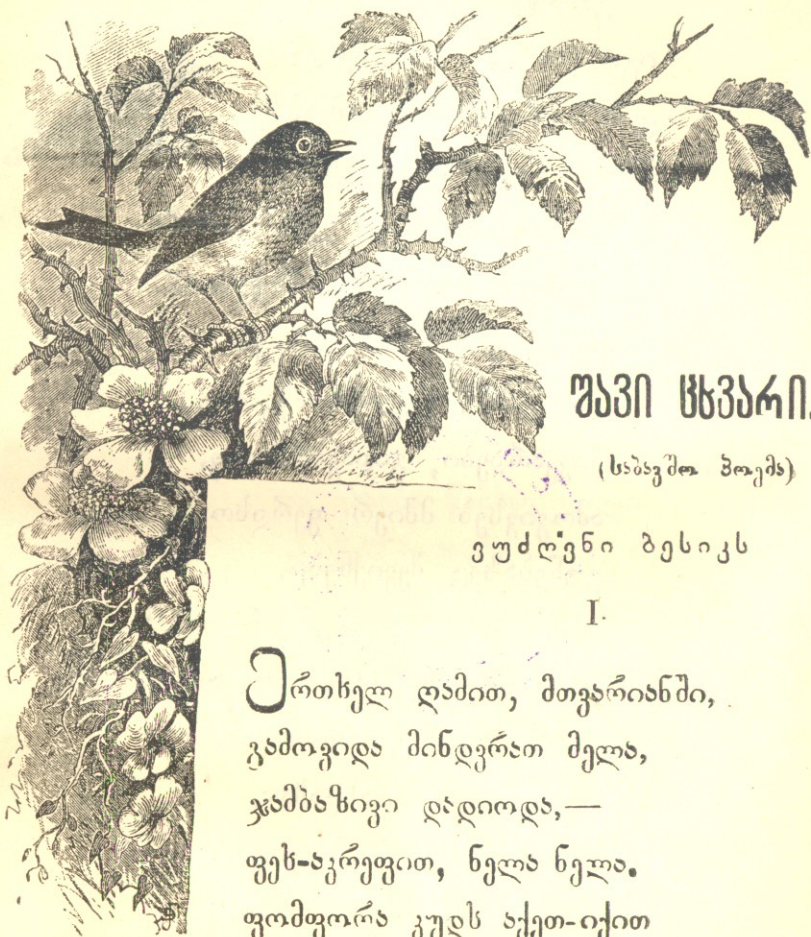 შავი ცხვარი.
(საბავშო პოემა)
ვუძღვნი ბესიკს
I.
ერთხელ ღამით, მთვარიანში,
გამოვიდა მინდვრათ მელა,
ჯამბაზივი დადიოდა,—
ფეხ-აკრეფით, ნელა ნელა.
ფომფორა კუდს აქეთ-იქით